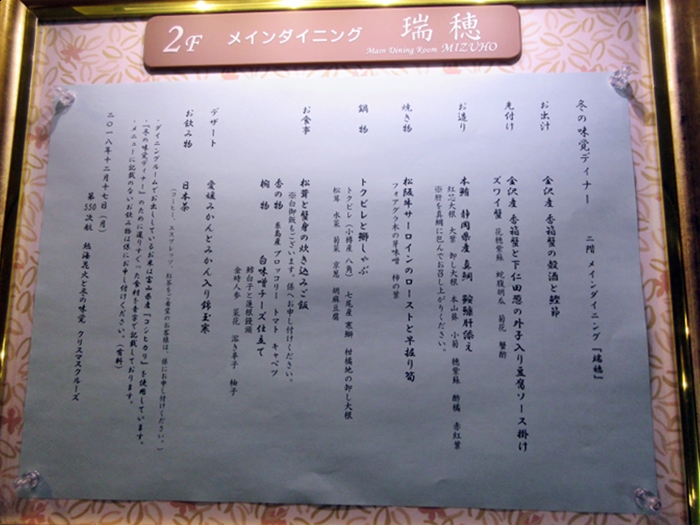 2F メインダイニング 瑞穂
Main Dining Room MIZUHO
冬の味覚ディナー 二階 メインダイニング『瑞穂』
お出汁 金沢産 香箱蟹の殻酒と鰹節
先付け 金沢産 香箱蟹と下仁田葱の外子入り豆腐ソース掛け
ズワイ蟹 花穂紫蘇 蛇腹胡瓜 菊花 蟹酢
お造り 本鮪 静岡県産真鯛 鮟鱇肝添え
紅芯大根 大葉 卸し大根 本山葵 小菊 穂紫蘇 酢橘 赤紅葉
※肝を真鯛に包んでお召し上がりください。
焼き物 松阪牛サーロインのローストと早掘り筍
フォアグラ 木の芽味噌 柿の葉
鍋物 トクビレと鰤しゃぶ
トクビレ(小樽産 八角) 七尾産 寒鰤 柑橘地の卸し大根
松茸 水菜 菊菜 京葱 胡麻豆腐
お食事 松茸と蟹身の炊き込みご飯
※白御飯もございます。係へお申し付けください。
香の物 糸島産 ブロッコリー トマト キャベツ
椀物 白味噌チーズ仕立て
鱈白子と蓮根饅頭
金時人参 菜花 溶き辛子 柚子
デザート 愛媛みかんとみかん入り錦玉寒
お飲み物 日本茶
(コーヒー、エスプレッソ、紅茶をご希望のお客様は、係にお申し付けください。)
・ダイニングルームでお出ししているお米は富山県産『コシヒカリ』を使用しています。
・『冬の味覚ディナー』のために選りすぐった食材を吾家で記載しております。
・メニューに記載のないお飲み物は係にお申し付けください。(有料)
二〇一八年十二月十七日(月)
第550次航 熱海花火と冬の味覚 クリスマスクルーズ